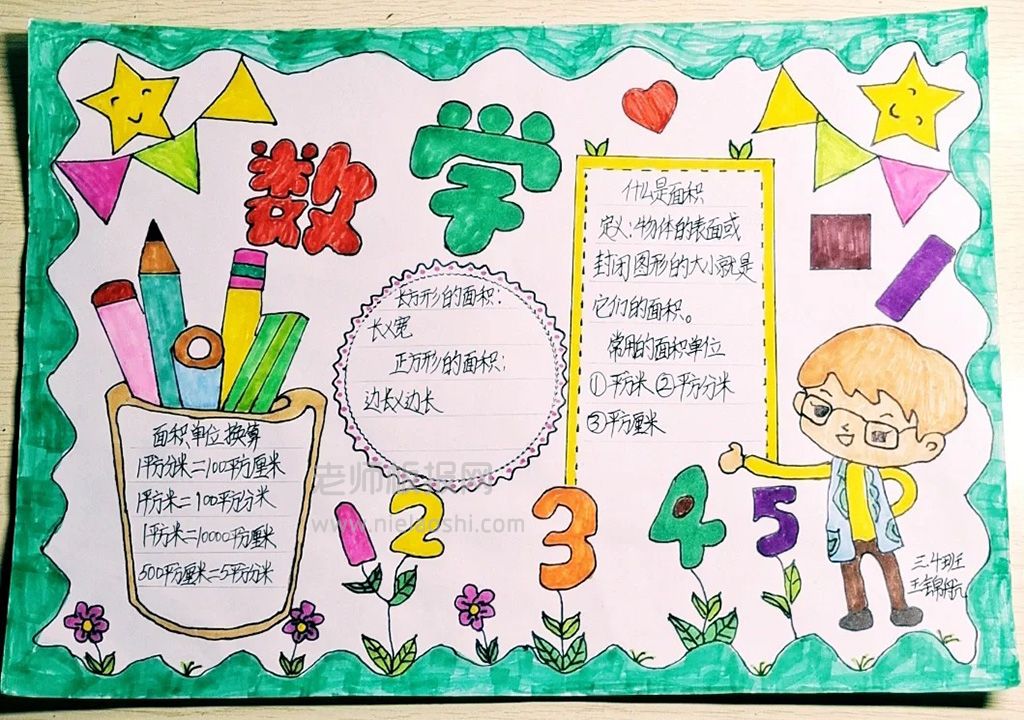 数学
什么是面积
定义:物体的表面或
封闭图形的大小就是
它们的面积。
常用的面积单位
①平方米②平方分米
③平方厘米
长方形的面积:
长×宽
正方形的面积:
边长×边长
面积单位换算
1平方分米=100平方厘米
1平方米=100平方分米
1平方米=10000平方厘米
500平方厘米=5平方分米
老师板报网
www.nielaoshi.com
1 2 3 4 5
三4班
王锦航